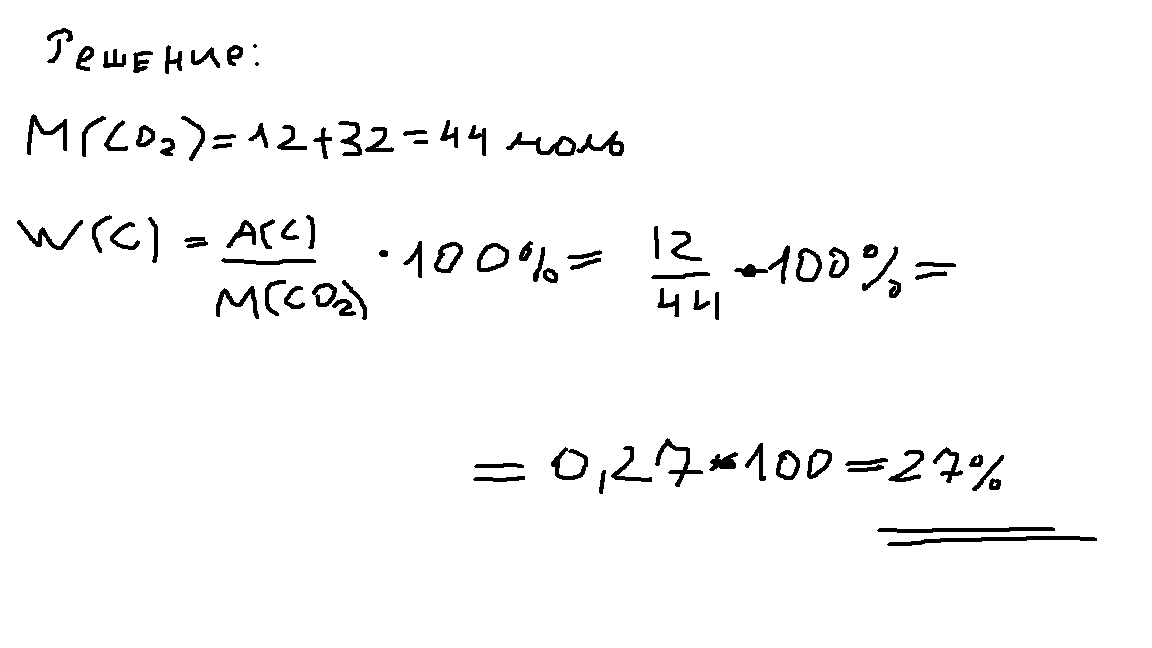 Решение:
M(CO₂)=12+32=44 моль
W(C) = A(C)/M(CO₂) · 100% = 12/44 · 100% =
= 0,27 * 100 = 27%